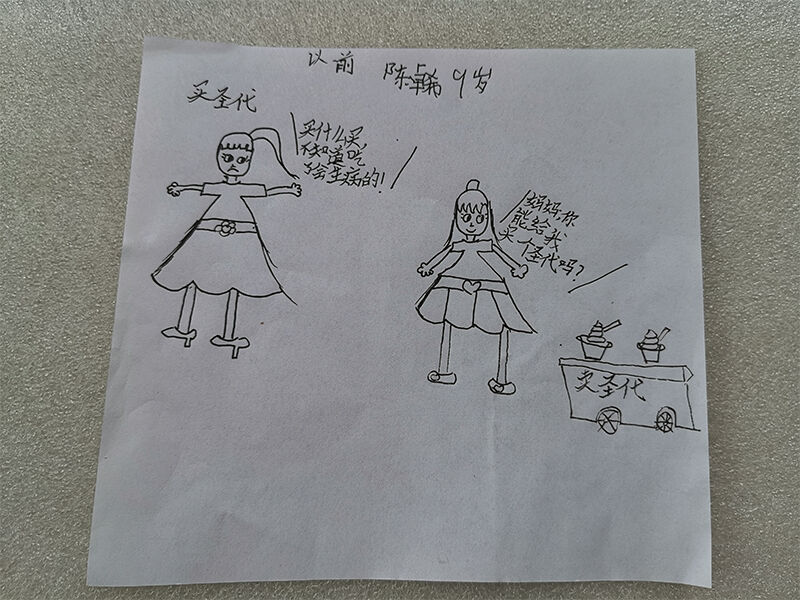 以前 陈卓希 9岁
买圣代
买什么买,
不知道吃
了会生病的!
妈妈,你
能给我
买个圣代吗?
卖圣代